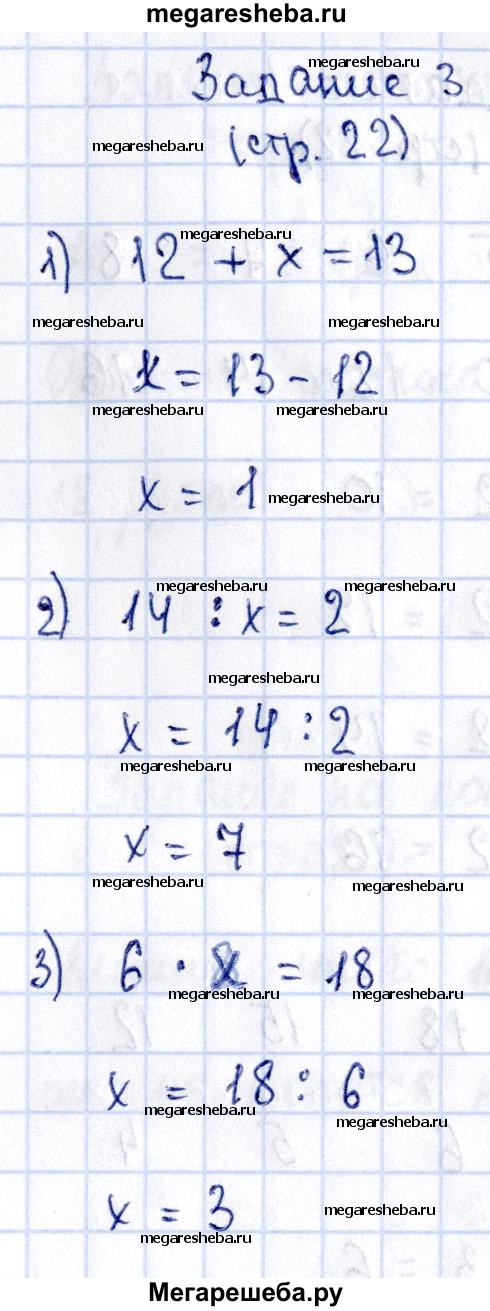 megaresheba.ru
megaresheba.ru
Задание 3
megaresheba.ru
(стр. 22)
megaresheba.ru
1) 12 + x = 13
megaresheba.ru megaresheba.ru
x = 13 - 12
megaresheba.ru megaresheba.ru
x = 1 megaresheba.ru
megaresheba.ru megaresheba.ru
2) 14 : x = 2
megaresheba.ru
x = 14 : 2
megaresheba.ru megaresheba.ru
x = 7
megaresheba.ru megaresheba.ru
3) 6 · x = 18
megaresheba.ru megaresheba.ru
x = 18 : 6
megaresheba.ru megaresheba.ru
x = 3 megaresheba.ru
megaresheba.ru
Мегарешеба.ру